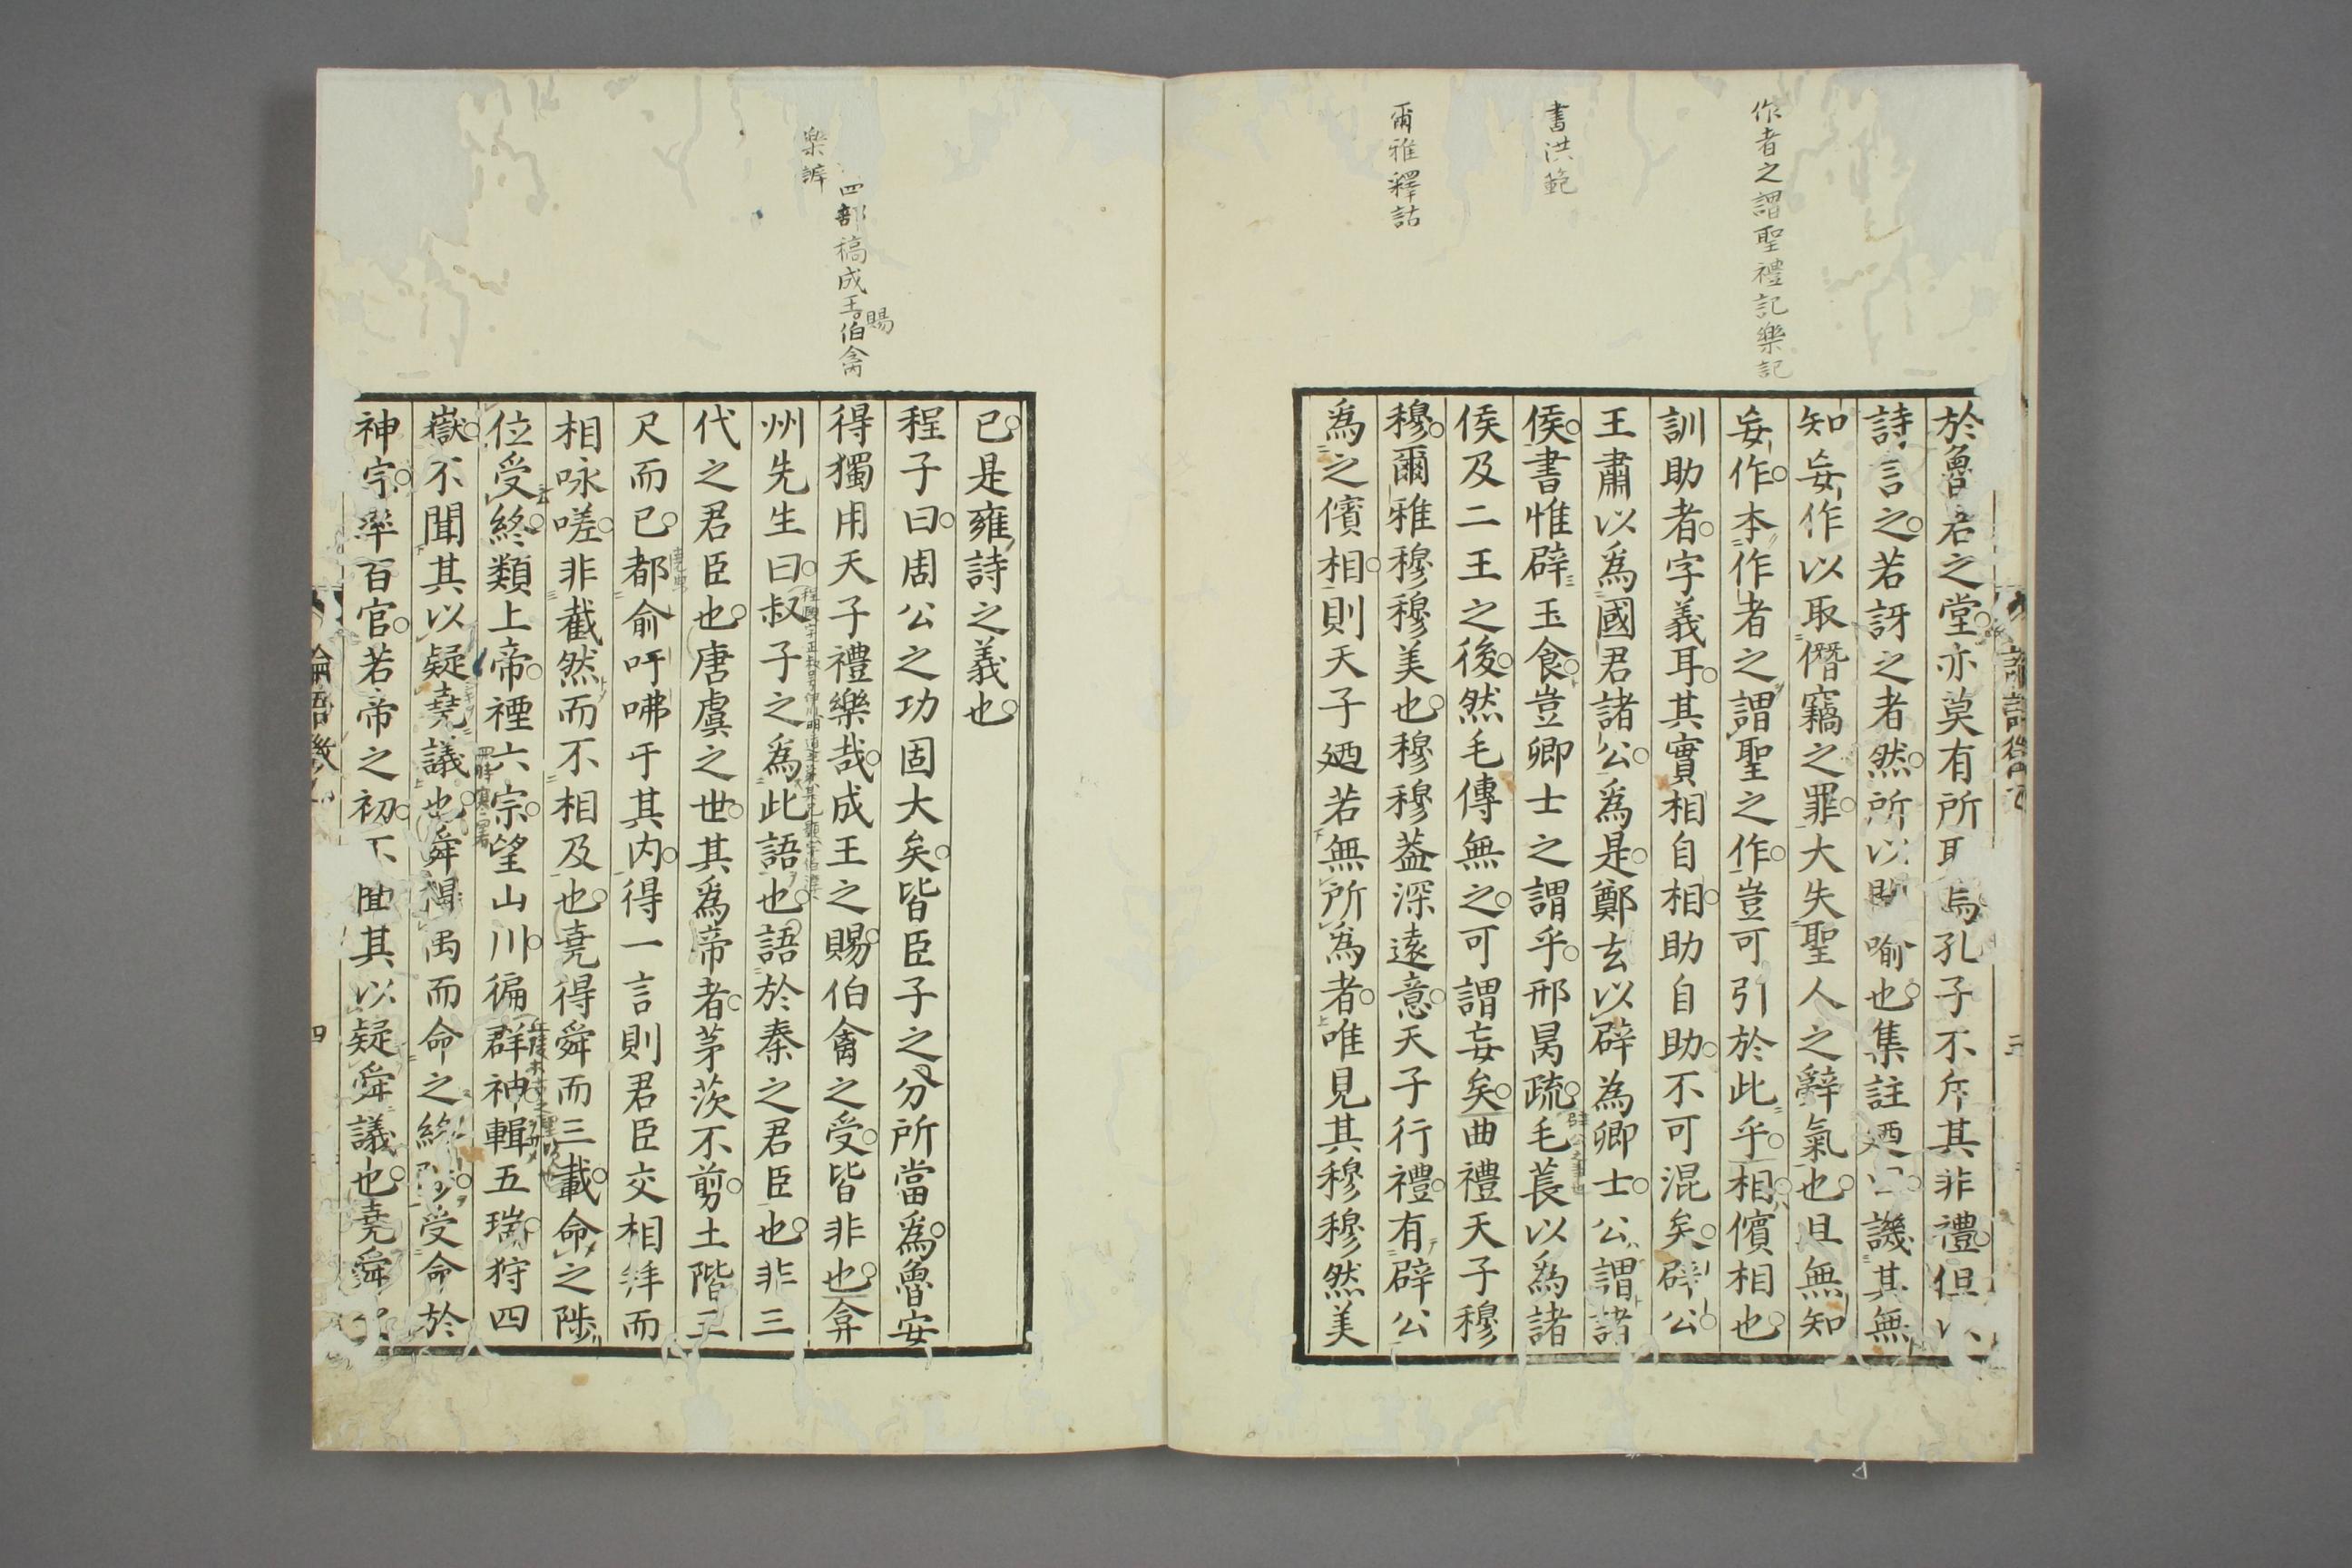 作者之謂聖禮記樂記
書洪範
爾雅釋詁
於魯君之堂亦莫有所取焉孔子不斥其非禮但以
詩言之若訝之者然所以 喻也集註迺 譏其無
知妄作以取僭竊之罪大失聖人之辭氣也且無知
妄作本作者之謂聖之作豈可引於此乎相儐相也
訓助者字義耳其實相自相助自助不可混矣辟公
王肅以爲國君諸公爲是鄭玄以辟為卿士公謂諸
侯書惟辟玉食豈卿士之謂乎邢昺疏毛萇以爲諸
侯及二王之後然毛傳無之可謂妄矣曲禮天子穆
穆爾雅穆穆美也穆穆蓋深遠意天子行禮有辟公
爲之儐相則天子迺若無所爲者唯見其穆穆然美
三
四部稿成王賜伯禽
樂
已是雍詩之義也
程子曰周公之功固大矣皆臣子之分所當爲魯安
得獨用天子禮樂哉成王之賜伯禽之受皆非也弇
州先生曰叔子之爲此語也語於秦之君臣也非三
代之君臣也唐虞之世其爲帝者茅茨不剪土階三
尺而已都俞吁咈于其内得一言則君臣交相拜而
相咏嗟非截然而不相及也堯得舜而三載命之陟
位受終類上帝禋六宗望山川徧群神輯五瑞狩四
嶽不聞其以疑堯議也舜得禹而命之終 受命於
神宗率百官若帝之初不聞其以疑舜議也堯舜
四